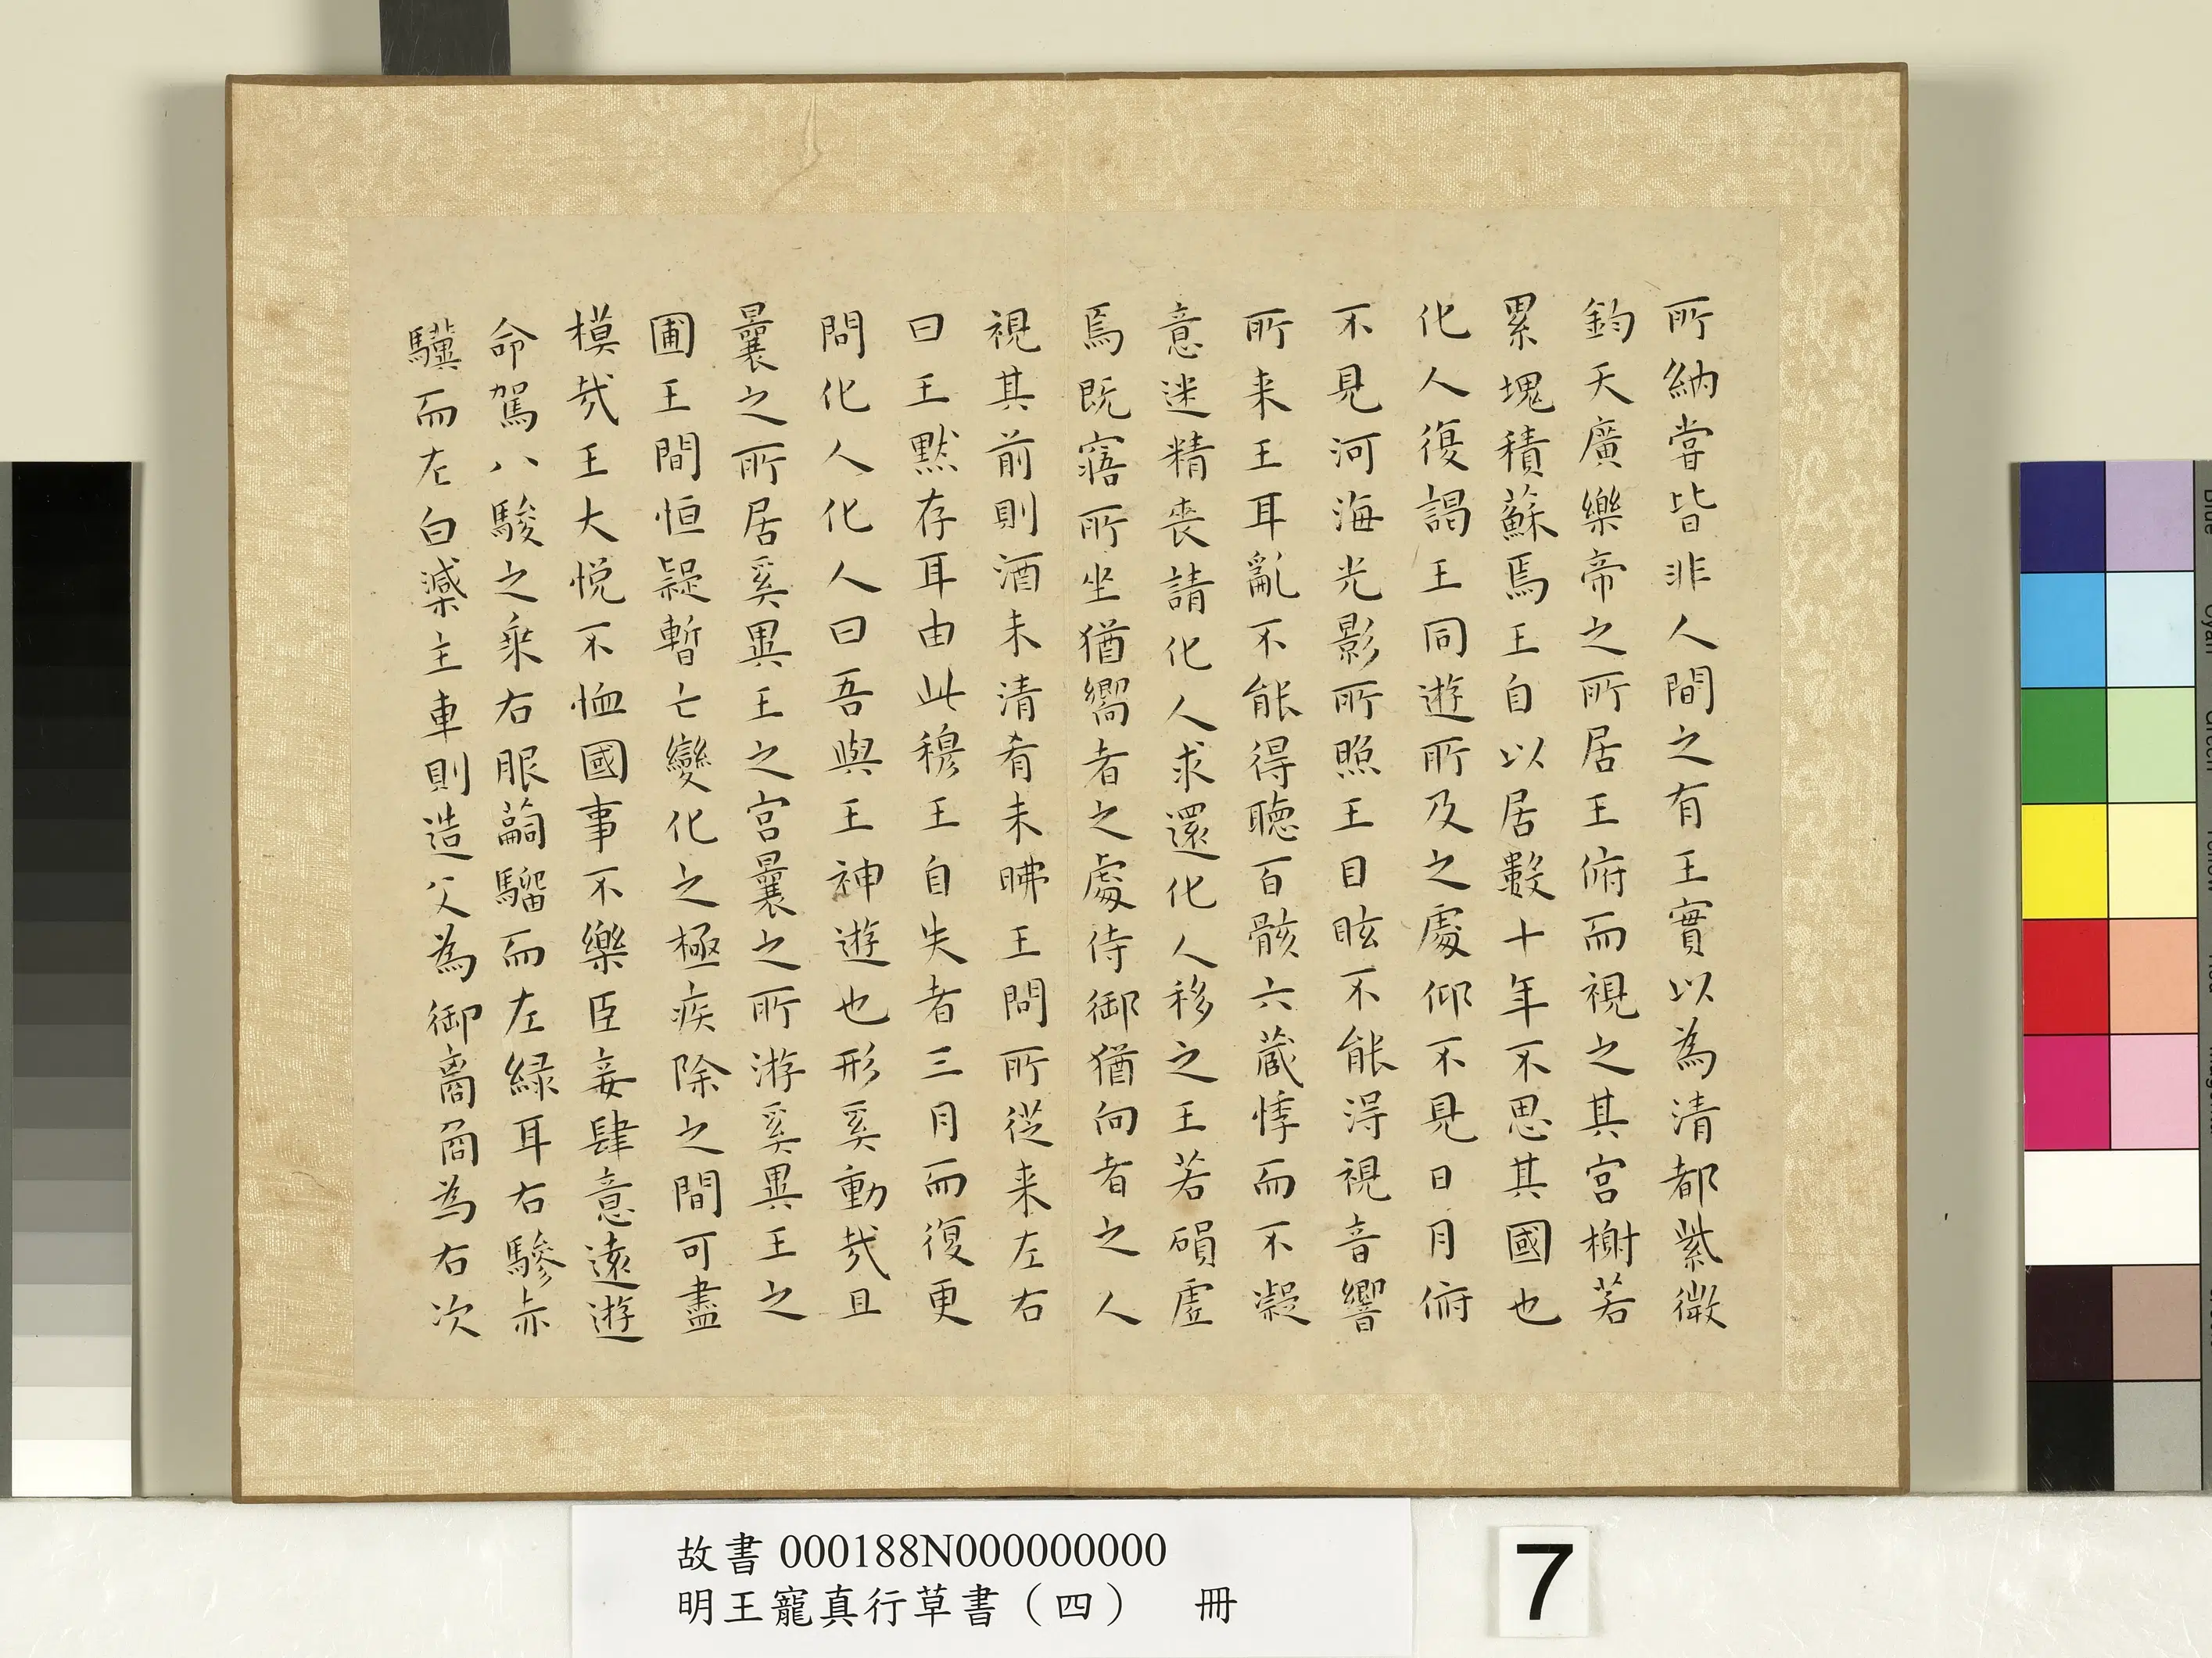 所納嘗皆非人間之有王實以為清都紫微
鈞天廣樂帝之所居王俯而視之其宮榭若
累塊積蘇焉王自以居數十年不思其國也
化人復謁王同遊所及之處仰不見日月俯
不見河海光影所照王目眩不能得視音響
所来王耳亂不能得聽百骸六藏悸而不凝
意迷精喪請化人求還化人移之王若磒虛
焉既寤所坐猶嚮者之處侍御猶向者之人
視其前則酒未清肴未昲王問所從来左右
曰王默存耳由此穆王自失者三月而復更
問化人化人曰吾與王神遊也形奚動哉且
曩之所居奚異王之宮曩之所游奚異王之
圃王間恒疑暫亡變化之極疾除之間可盡
模哉王大悅不恤國事不樂臣妾肆意遠遊
命駕八駿之乘右服騮而左緑耳右驂赤
驥而左白主車則造父為御為右次
故書000188N000000000
明王寵真行草書（四） 冊
7